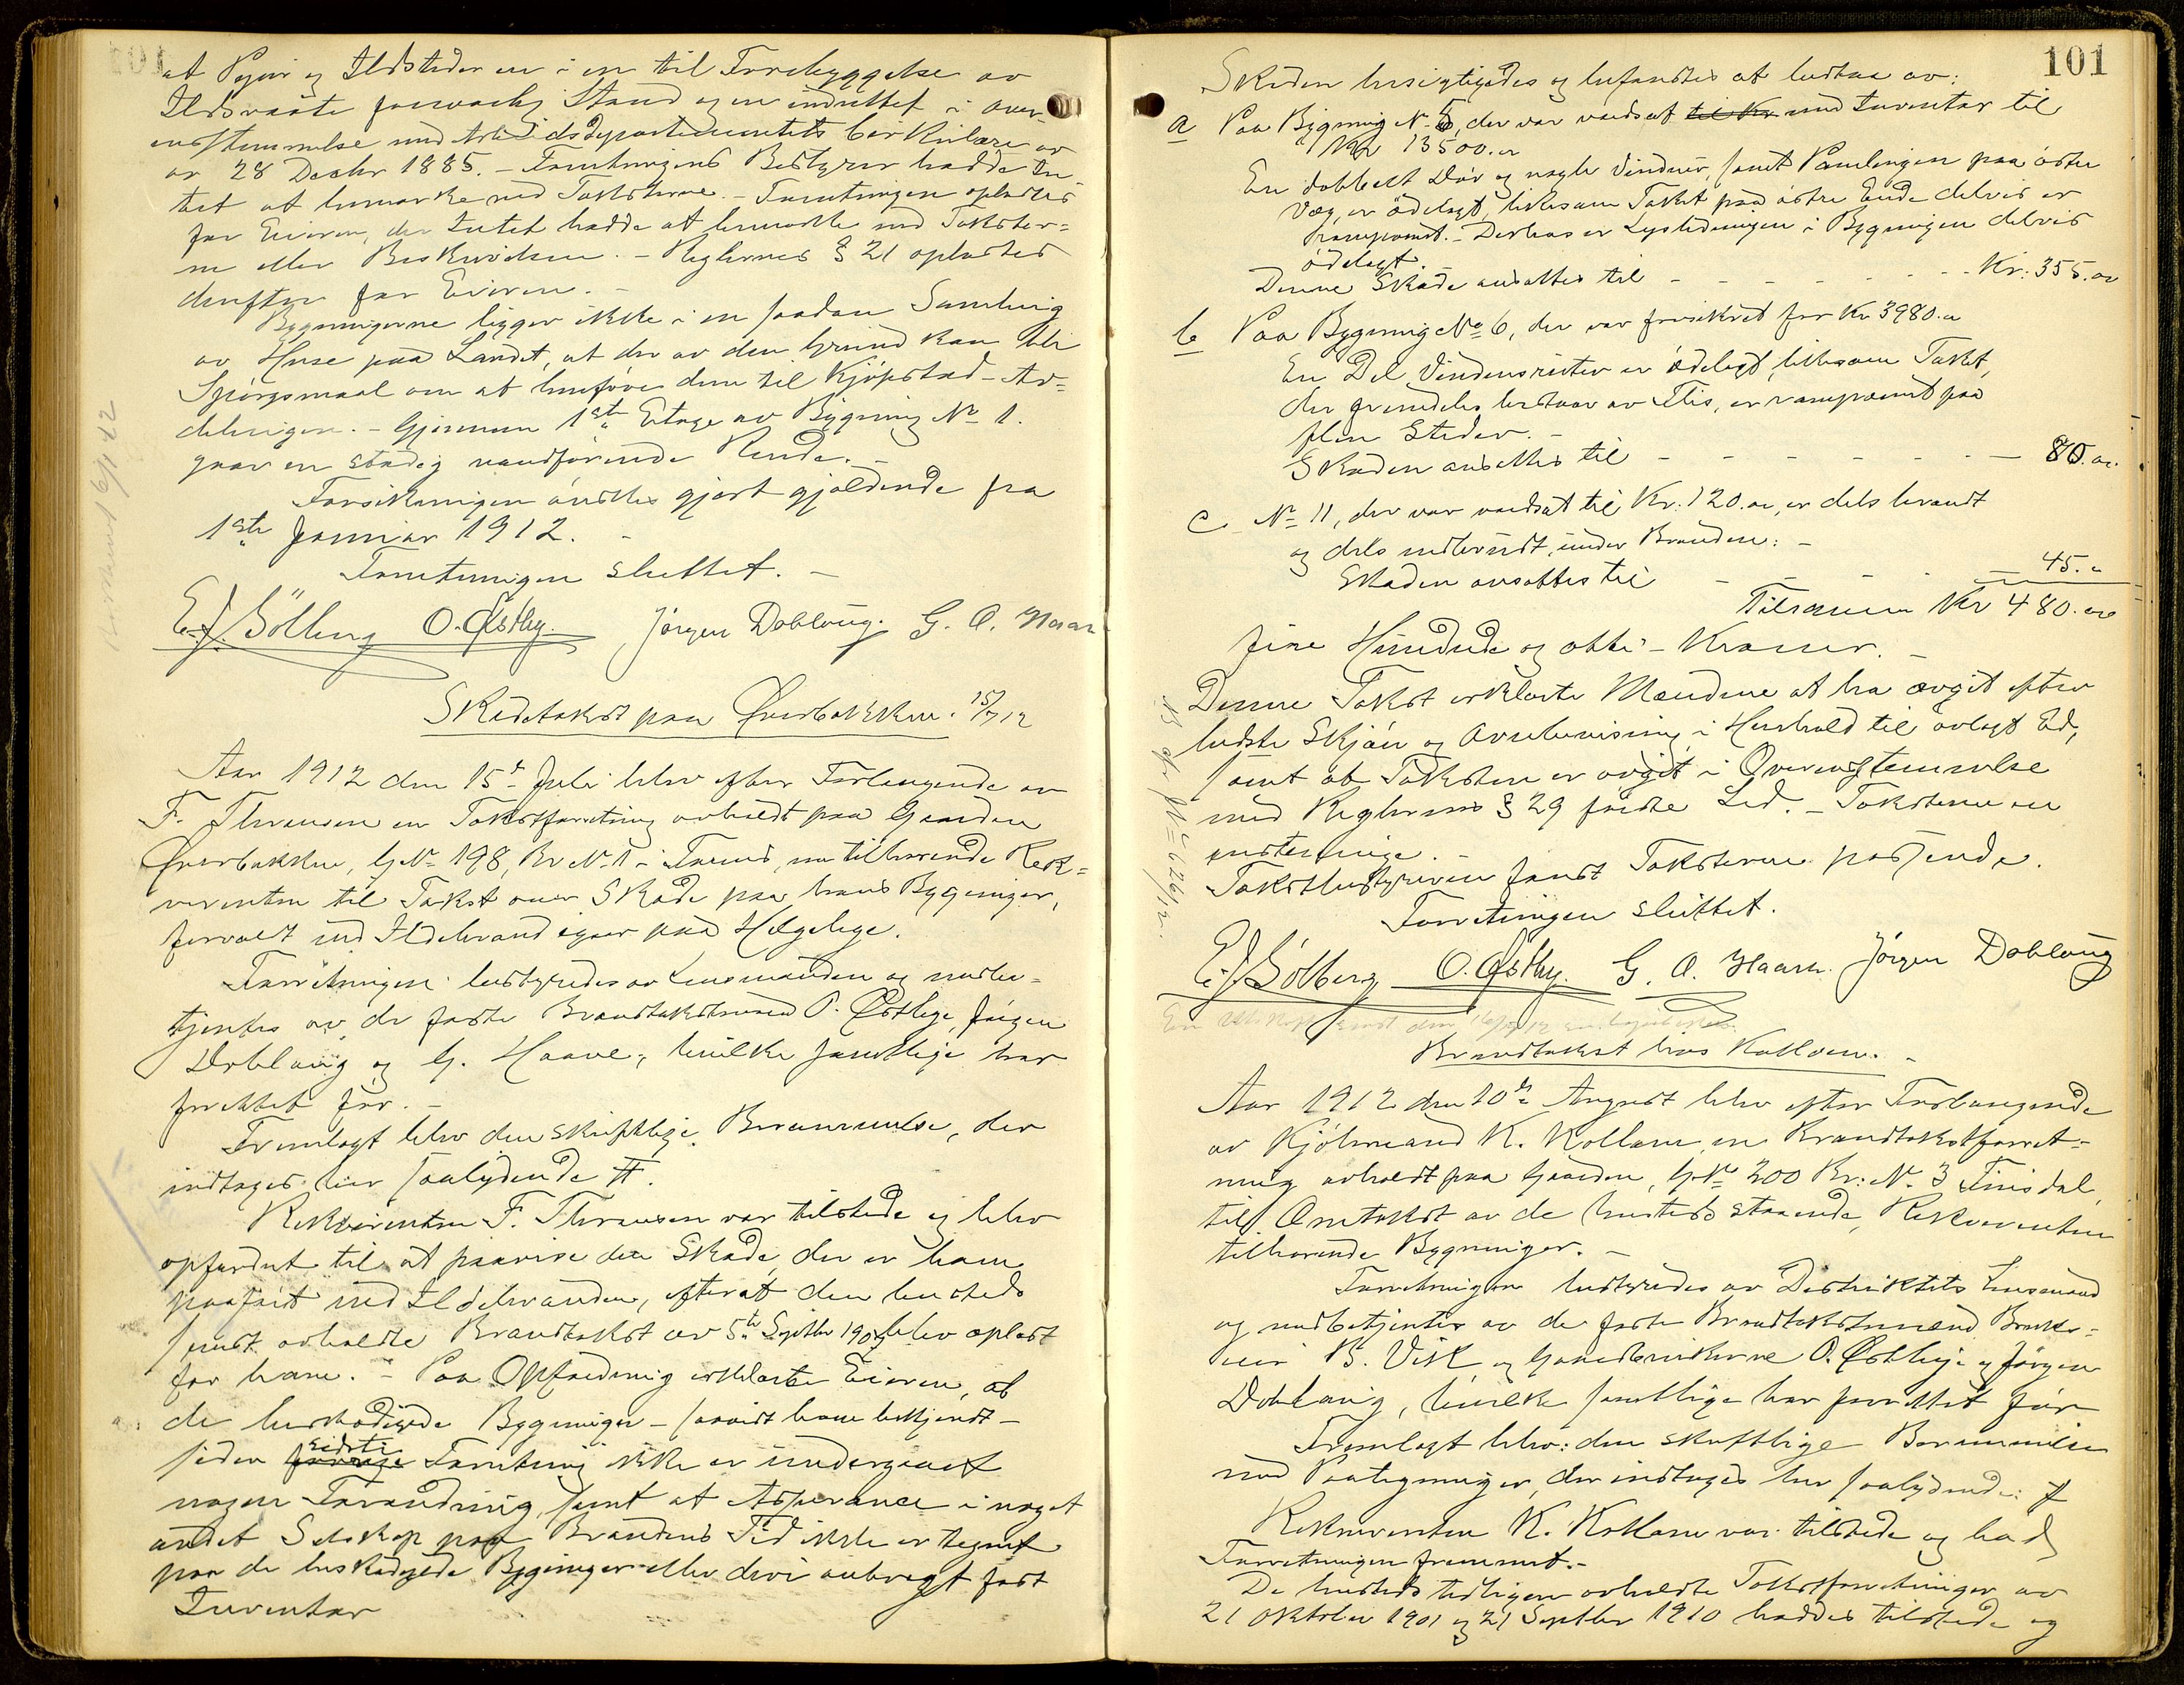 at Piper og Ildsteder er i en til Forebyggelse av
Ildsvaade forsvarlig Stand og er indrettet i Over-
ensstemmelse med Arbeidsdepartementets Cirkulære av
av 28 Decbr 1885. – Forretningens Bestyrer hadde In-
tet at bemærke med Taksterne. – Forretningen oplæstes
for Eieren, der Intet hadde at bemærke med Takster-
ne eller Beskrivelsen. – Reglernes § 21 oplæstes
derefter for Eieren. –
Bygningerne ligger ikke i en saadan Samling
av Huse paa Landet, at der av den Grund kan bli
Spörgsmaal om at henføre dem til Kjöpstad-Av-
delingen. – Gjennem 1ste Etage av Bygning No 1.
gaar en stadig vandförende Rende. –
Forsikringen önskes gjort gjældende fra
1ste Januar 1912. –
Forretningen sluttet. –
E. J. Sölberg O. Østby. Jörgen Dobloug. G. O. Haarr
Skadetakst paa Øverbakken. 15/7 12
Aar 1912 den 15de Juli blev efter Forlangende av
F. Thransen en Takstforretning avholdt paa Gaarden
Øverbakken, G.No 198, Br No 1 i Furnes, tilhørende Rek-
virenten til Takst over Skade paa hans Bygninger,
forvoldt ved Ildebrand igaar paa Helgelige.
Forretningen bestyredes av Lensmanden og medbe-
tjentes av de faste Brandtakstmænd O. Østlige, Jörgen
Doblaug og G. Haave, hvilke samtlige har
forrettet för. –
Fremlagt blev den skriftlige Berammelse, der
indtages her saalydende #.
Rekvirenten F. Thransen var tilstede og blev
opfordret til at paavise den Skade, der er ham
paaført ved Ildebranden, efterat den hersteds
sidst avholdte Brandtakst av 5te Septbr 1909 blev oplæst
for ham. – Paa Opfordring erklærte Eieren, at
de beskadigede Bygninger – saavidt ham bekjendt –
siden forrige sidste Forretning ikke er undergaaet
nogen Forandring, samt at Assurance i noget
andet Selskap paa Brandens Tid ikke er tegnet
paa de beskadigede Bygninger eller deri anbragt fast
Inventar
101
Skaden besigtigedes og befandtes at bestaa av:
a Paa Bygning No 5, der var vurdsat til Kr. med Inventar til
Kr 13500.oo
En dobbelt Dör og nogle Vinduer, samt Panelingen paa östre
Væg, er ödelagt, likesom Taket paa östre Ende delvis er
ramponert. – Derhos er Lysledningen i Bygningen delvis
ödelagt. –
Denne Skade ansattes til – – – – – – Kr: 355.oo
b Paa Bygning No 6, der var forsikret for Kr 3980.oo
En Del Vinduesruter er ödelagt, likesom Taket,
der fremdeles bestaar av Flis, er ramponert paa
flere Steder. –
Skaden ansattes til – – – – – – – 80.oo
c No 11, der var vurdsat til Kr. 120.oo, er dels brændt
og dels nedrevet under Branden: –
Skaden ansattes til – – – – 45.oo
Tilsammen Kr 480.oo
fire Hundrede og otti – Kroner. –
Denne Takst erklærte Mændene at ha avgit efter
bedste Skjön og Overbevisning i Henhold til avlagt Ed,
samt at Taksten er avgit i Overensstemmelse
med Reglernes § 29 første Led. – Taksterne er
enstemmige. –
Takstbestyreren fandt Taksterne passende.
Forretningen sluttet.
E. J. Sölberg O. Østby. G. O. Haarr. Jörgen Doblaug
En Utskrift sendt den 16/7 12
Brandtakst hos Kollom. –
Aar 1912 den 10de August blev efter Forlangende
av Kjöbmand K. Kollom en Brandtakstforret-
ning avholdt paa Gaarden, G.No 200 Br: No 3 Finsdal,
til Omtakst av de hersteds staaende, Rekvirenten
tilhørende Bygninger. –
Forretningen bestyredes av Distriktets Lensmand
og medbetjentes av de faste Brandtakstmænd Bruks-
eier B. Vik og Gaardbrukerne O. Østlige og Jörgen
Doblaug, hvilke samtlige har forrettet för
Fremlagt blev: den skriftlige Berammelse
med Paategninger, der indtages her saalydende: #
Rekvirenten K. Kollom var tilstede og bad
Forretningen fremmet. –
De hersteds tidligere avholdte Takstforretninger av
21 Oktober 1901 og 21 Septbr 1910 haddes tilstede og